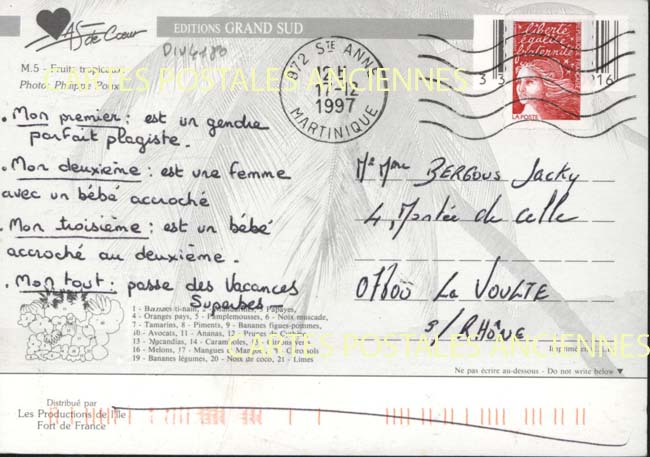 As de Cœur
EDITIONS GRAND SUD
M.5 - Fruits tropicaux
Photo: Philippe Poux
9712 STE ANNE
17-12
1997
MARTINIQUE
liberté
égalité
fraternité
LA POSTE
3 3
16
CARTES POSTALES ANCIENNES
. Mon premier : est un gendre
parfait plagiste.
. Mon deuxième : est une femme
avec un bébé accroché
. Mon troisième : est un bébé
accroché au deuxième.
. Mon tout : passe des Vacances
Superbes -
Mr Mme BERGOUS Jacky
4, Montée de celle
07800 La VOULTE
s/ RHÔNE
1 - Bananes ti-nain, 2 - Mandarines, 3 - Papayes,
4 - Oranges pays, 5 - Pamplemousses, 6 - Noix muscade,
7 - Tamarins, 8 - Piments, 9 - Bananes figues-pommes,
10 - Avocats, 11 - Ananas, 12 - Prunes de Cythère
13 - 14 - Caramboles, 15 - Citrons verts
16 - Melons, 17 - Mangues 18 - Corossols
19 - Bananes légumes, 20 - Noix de coco, 21 - Limes
CARTES POSTALES ANCIENNES
Imprimé
Ne pas écrire au-dessous - Do not write below
Distribué par
Les Productions de l'Ile
Fort de France